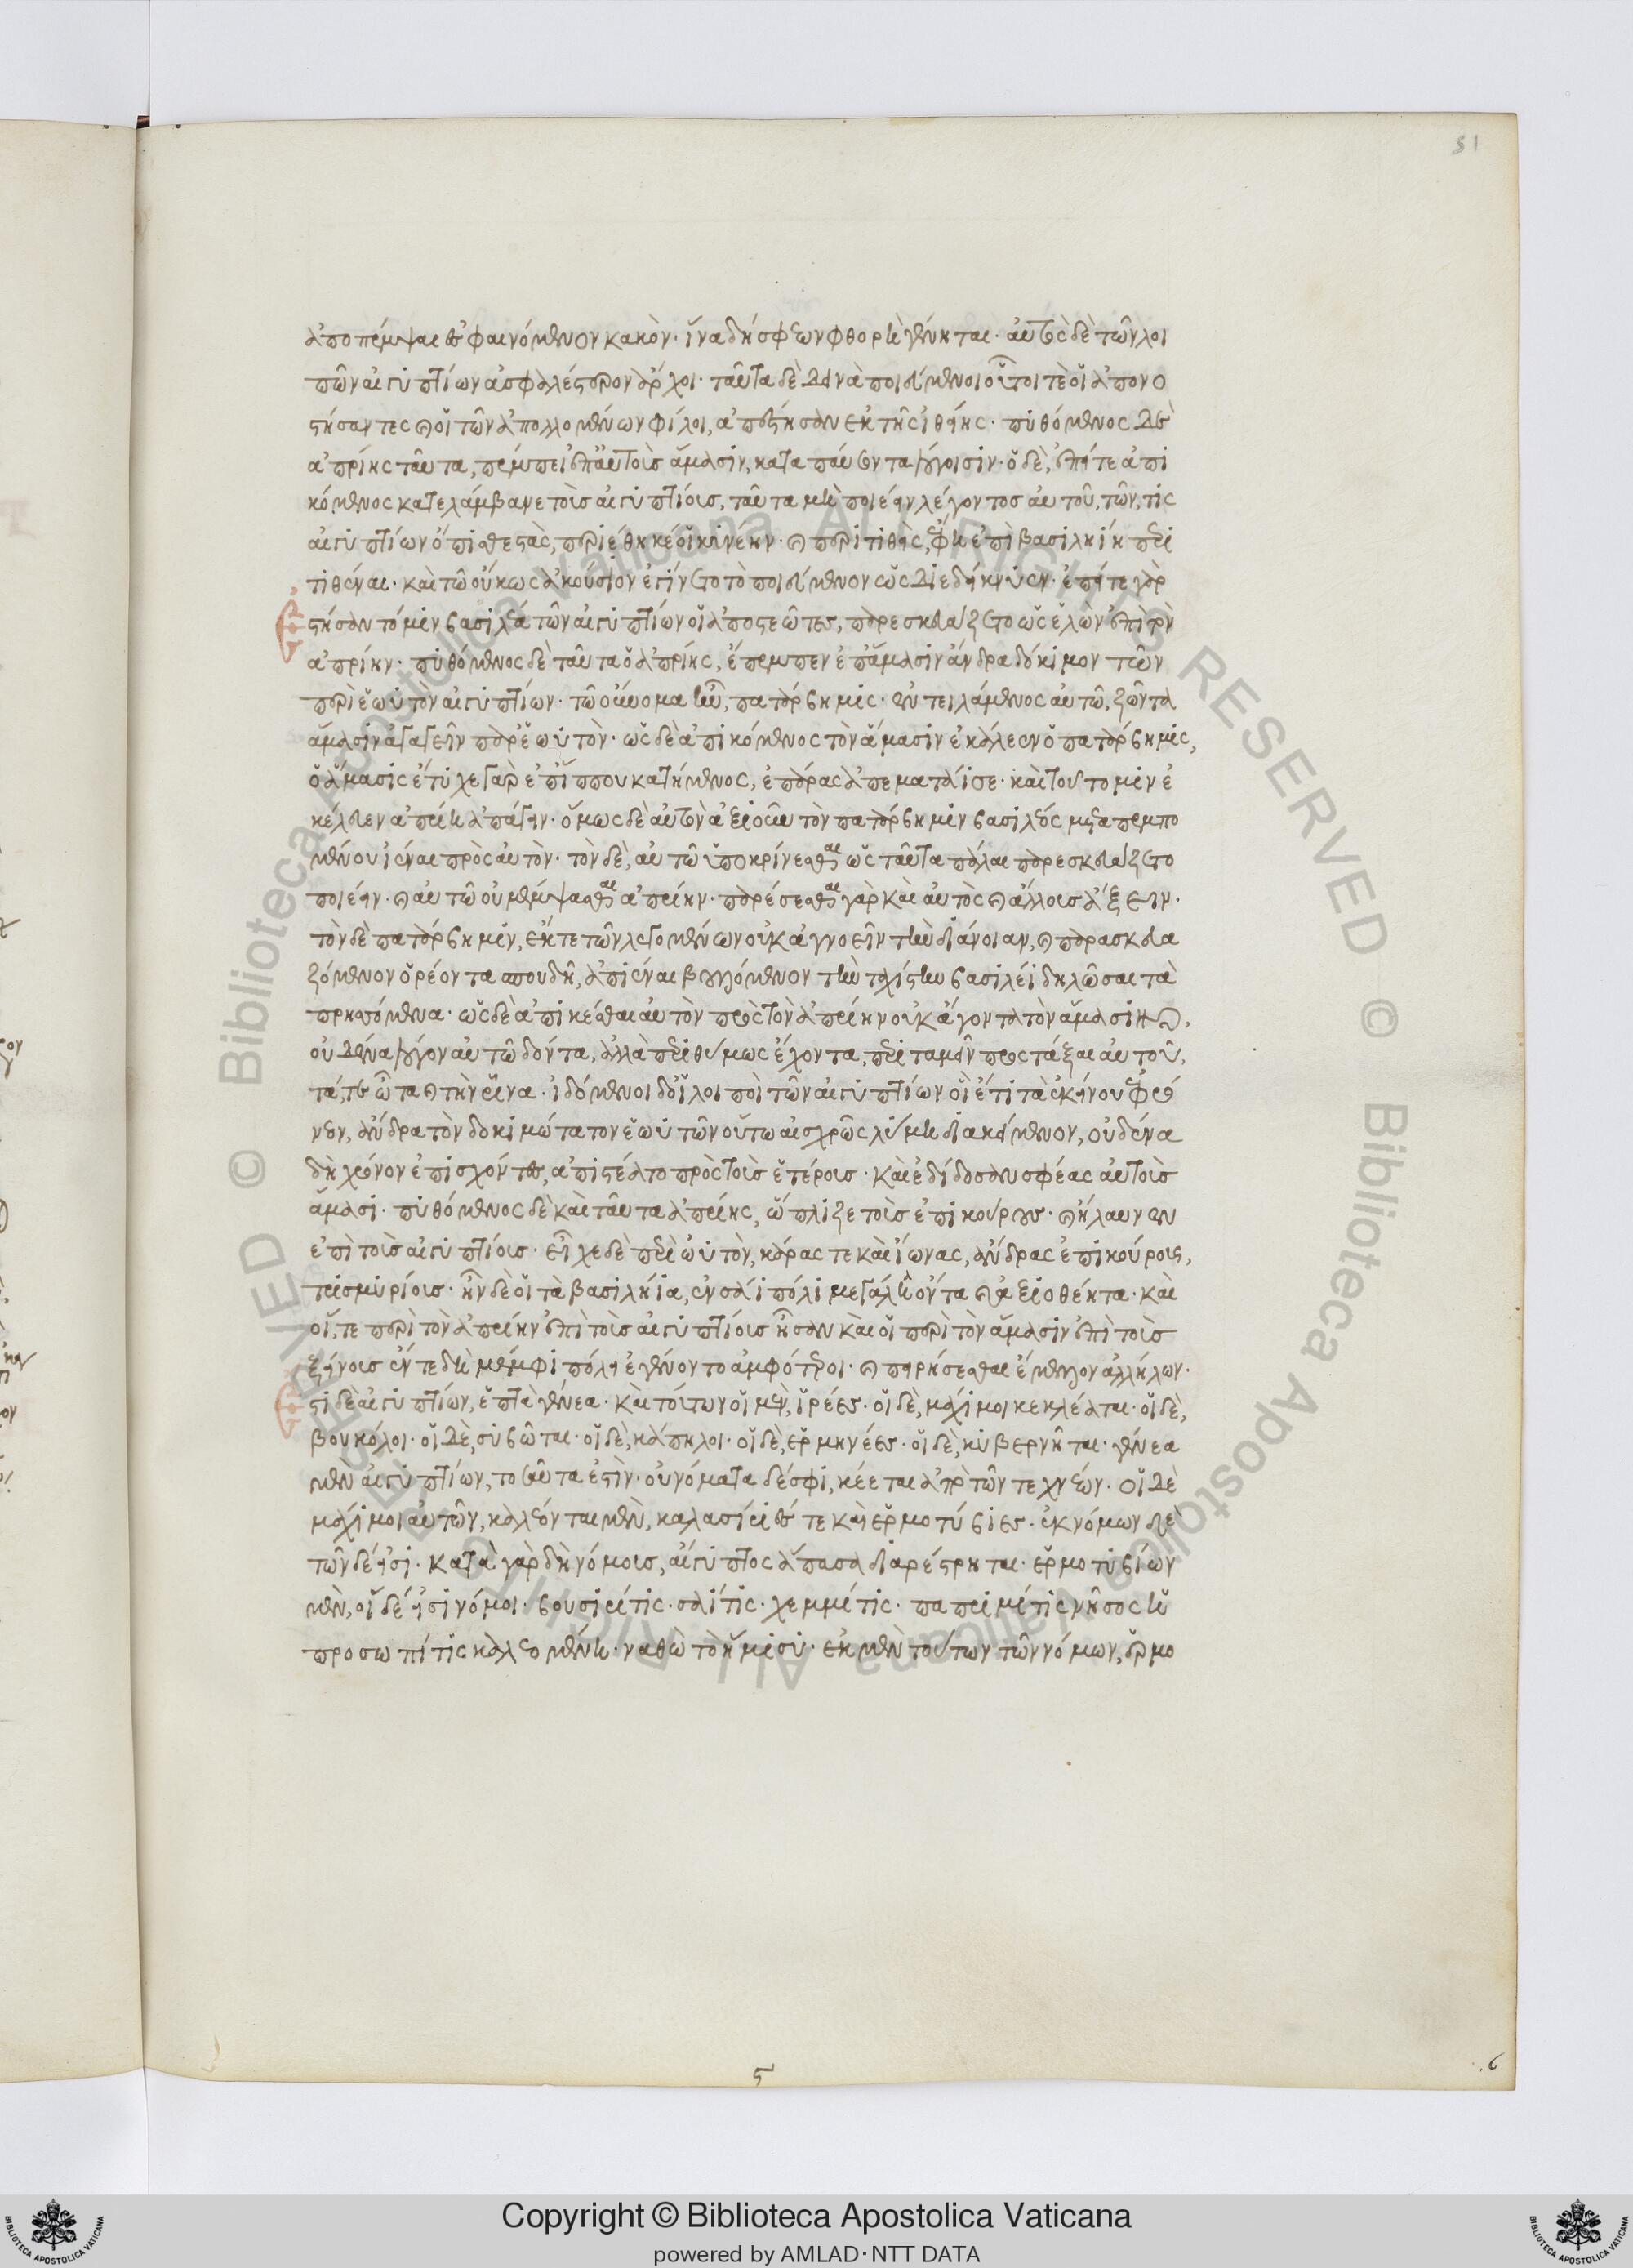 ἀποπέμψαι ἐς φαινόμενον κακὸν· ἵνα δή σφεων φθορὴ γένηται· αὐτὸς δὲ τῶν λοι
πῶν αἰγυπτίων ἀσφαλέστερον ἄρχοι· ταῦτα δὲ δεινὰ ποιεύμενοι οὗτοι τὲ οἵ ἀπονο
στήσαντες καὶ οἱ τῶν ἀπολλομένων φίλοι, ἀπέστησαν ἐκ τῆς ἰθείης· πυθόμενος δὲ
ἀπρίης ταῦτα, πέμπει ἐπ' αὐτοὺς ἄμασιν, καταπαύσοντα λόγοισιν· ὁ δὲ, ἐπείτε ἀπι
κόμενος κατελάμβανε τοὺς αἰγυπτίους, ταῦτα μὴ ποιέειν λέγοντος αὐτοῦ, τῶν, τίς
αἰγυπτίων ὄπισθε στὰς, περιέθηκέ οἱ κυνέην· καὶ περιτιθεὶς, ἔφη ἐπὶ βασιληίη περι
τιθέναι· καὶ τῶ οὔκως ἀκούσιον ἐγίνετο τὸ ποιεύμενον ὡς διεδείκνυεν· ἐπείτε γὰρ
στήσαντό μιν βασιλέα τῶν αἰγυπτίων οἱ ἀπεστεῶτες, παρεσκευάζετο ὡς ἐλῶν ἐπὶ τὸν
ἀπρίην· πυθόμενος δὲ ταῦτα ὁ ἀπρίης, ἔπεμπεν ἐπ' ἄμασιν ἄνδρα δόκιμον τῶν
περὶ ἑωυτὸν αἰγυπτίων· τῶ οὔνομα ἦν, πατάρβημις· ἐντειλάμενος αὐτῶ, ζῶντα
ἄμασιν ἀγαγεῖν παρ' ἑωυτὸν· ὡς δὲ ἀπικόμενος τὸν ἄμασιν ἐκάλεεν ὁ πατάρβημις,
ὁ ἄμασις ἔτυχε γὰρ ἐπ' ἵππου κατήμενος, ἐπάρας ἀπεματάισε· καὶ τοῦτο μιν ἐ
κέλευεν ἀπρίη ἀπάγειν· ὅμως δὲ αὐτὸν ἀξιοῦν τὸν πατάρβημιν βασιλέος μεταπεμπο
μένου ἰέναι πρὸς αὐτὸν· τὸν δὲ, αὐτῶ ὑποκρίνεσθαι ὡς ταῦτα πάλαι παρεσκευάζετο
ποιέειν· καὶ αὐτῶ οὐ μέμψασθαι ἀπρίην· παρέσεσθαι γὰρ καὶ αὐτὸς καὶ ἄλλους ἄξειν·
τὸν δὲ πατάρβημιν, ἔκ τε τῶν λεγομένων οὐκ ἀγνοεῖν τὴν διάνοιαν, καὶ παρασκευα
ζόμενον ὁρέοντα σπουδῆ, ἀπιέναι βουλόμενον τὴν ταχίστην βασιλέι δηλῶσαι τὰ
πρησσόμενα· ὡς δὲ ἀπικέσθαι αὐτὸν πρὸς τὸν ἀπρίην οὐκ ἄγοντα τὸν ἄμασιν,
οὐδένα λόγον αὐτῶ δόντα, ἀλλὰ περιθύμως ἔχοντα, περιταμεῖν προστάξαι αὐτοῦ,
τά, τε ὦτα καὶ τὴν ῥῖνα· ἰδόμενοι δ' οἱ λοιποὶ τῶν αἰγυπτίων οἳ ἔτι τὰ ἐκείνου ἐφρό
νεον, ἄνδρα τὸν δοκιμώτατον ἑωυτῶν οὕτω αἰσχρῶς λύμη διακείμενον, οὐδένα
δὴ χρόνον ἐπισχόντες, ἀπιστέατο πρὸς τοὺς ἑτέρους· καὶ ἐδίδοσαν σφέας αὐτοὺς
ἀμάσι· πυθόμενος δὲ καὶ ταῦτα ἀπρίης, ὥπλιζε τοὺς ἐπικούρους· καὶ ἤλαυνεν
ἐπὶ τοὺς αἰγυπτίους· εἶχε δὲ περὶ ὠυτὸν, κάρας τε καὶ ἴωνας, ἄνδρας ἐπικούρους,
τρισμυρίους· ἦν δέ οἱ τὰ βασιλήια, ἐν σάι πόλι μεγάλη ὄντα καὶ ἀξιοθέητα· καὶ
οἵ, τε περὶ τὸν ἀπρίην ἐπὶ τοὺς αἰγυπτίους ἦσαν καὶ οἱ περὶ τὸν ἄμασιν ἐπὶ τοὺς
ξείνους ἔν τε δὴ μέμφι πόλει ἐγένοντο ἀμφότεροι· καὶ πειρήσεσθαι ἔμελλον ἀλλήλων·
στι δὲ αἰγυπτίων, ἑπτὰ γένεα· καὶ τούτων οἱ μὲν, ἱρέες· οἱ δὲ, μάχιμοι κεκλέαται· οἱ δὲ,
βουκόλοι· οἱ δὲ, συβῶται· οἱ δὲ, κάπηλοι· οἱ δὲ, ἑρμηνέες· οἱ δὲ, κυβερνῆται· γένεα
μὲν αἰγυπτίων, τοσαῦτα ἐστὶν· οὐνόματα δέ σφι, κέεται ἀπὸ τῶν τεχνέων· οἱ δὲ
μάχιμοι αὐτῶν, καλέονται μὲν, καλασίριές τε καὶ ἑρμοτύβιες· ἐκ νόμων δὲ
τῶνδε εἰσι· κατὰ γὰρ δὴ νόμους, αἴγυπτος ἅπασα διαρέστρηται· ἑρμοτυβίων
μὲν, οἵδε εἰσι νόμοι· βουσιρίτις· σαίτις· χεμμίτις· παπριμίτις νῆσος ἡ
προσωπίτις καλεομένη· ναθὼ τὸ ἥμισυ· ἐκ μὲν τούτων τῶν νόμων, ἑρμο